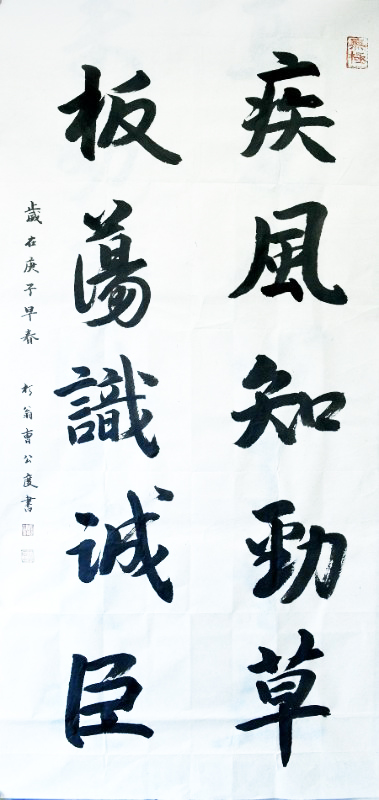 疾風知勁草
板蕩識誠臣
歲在庚子早春 曹公度書